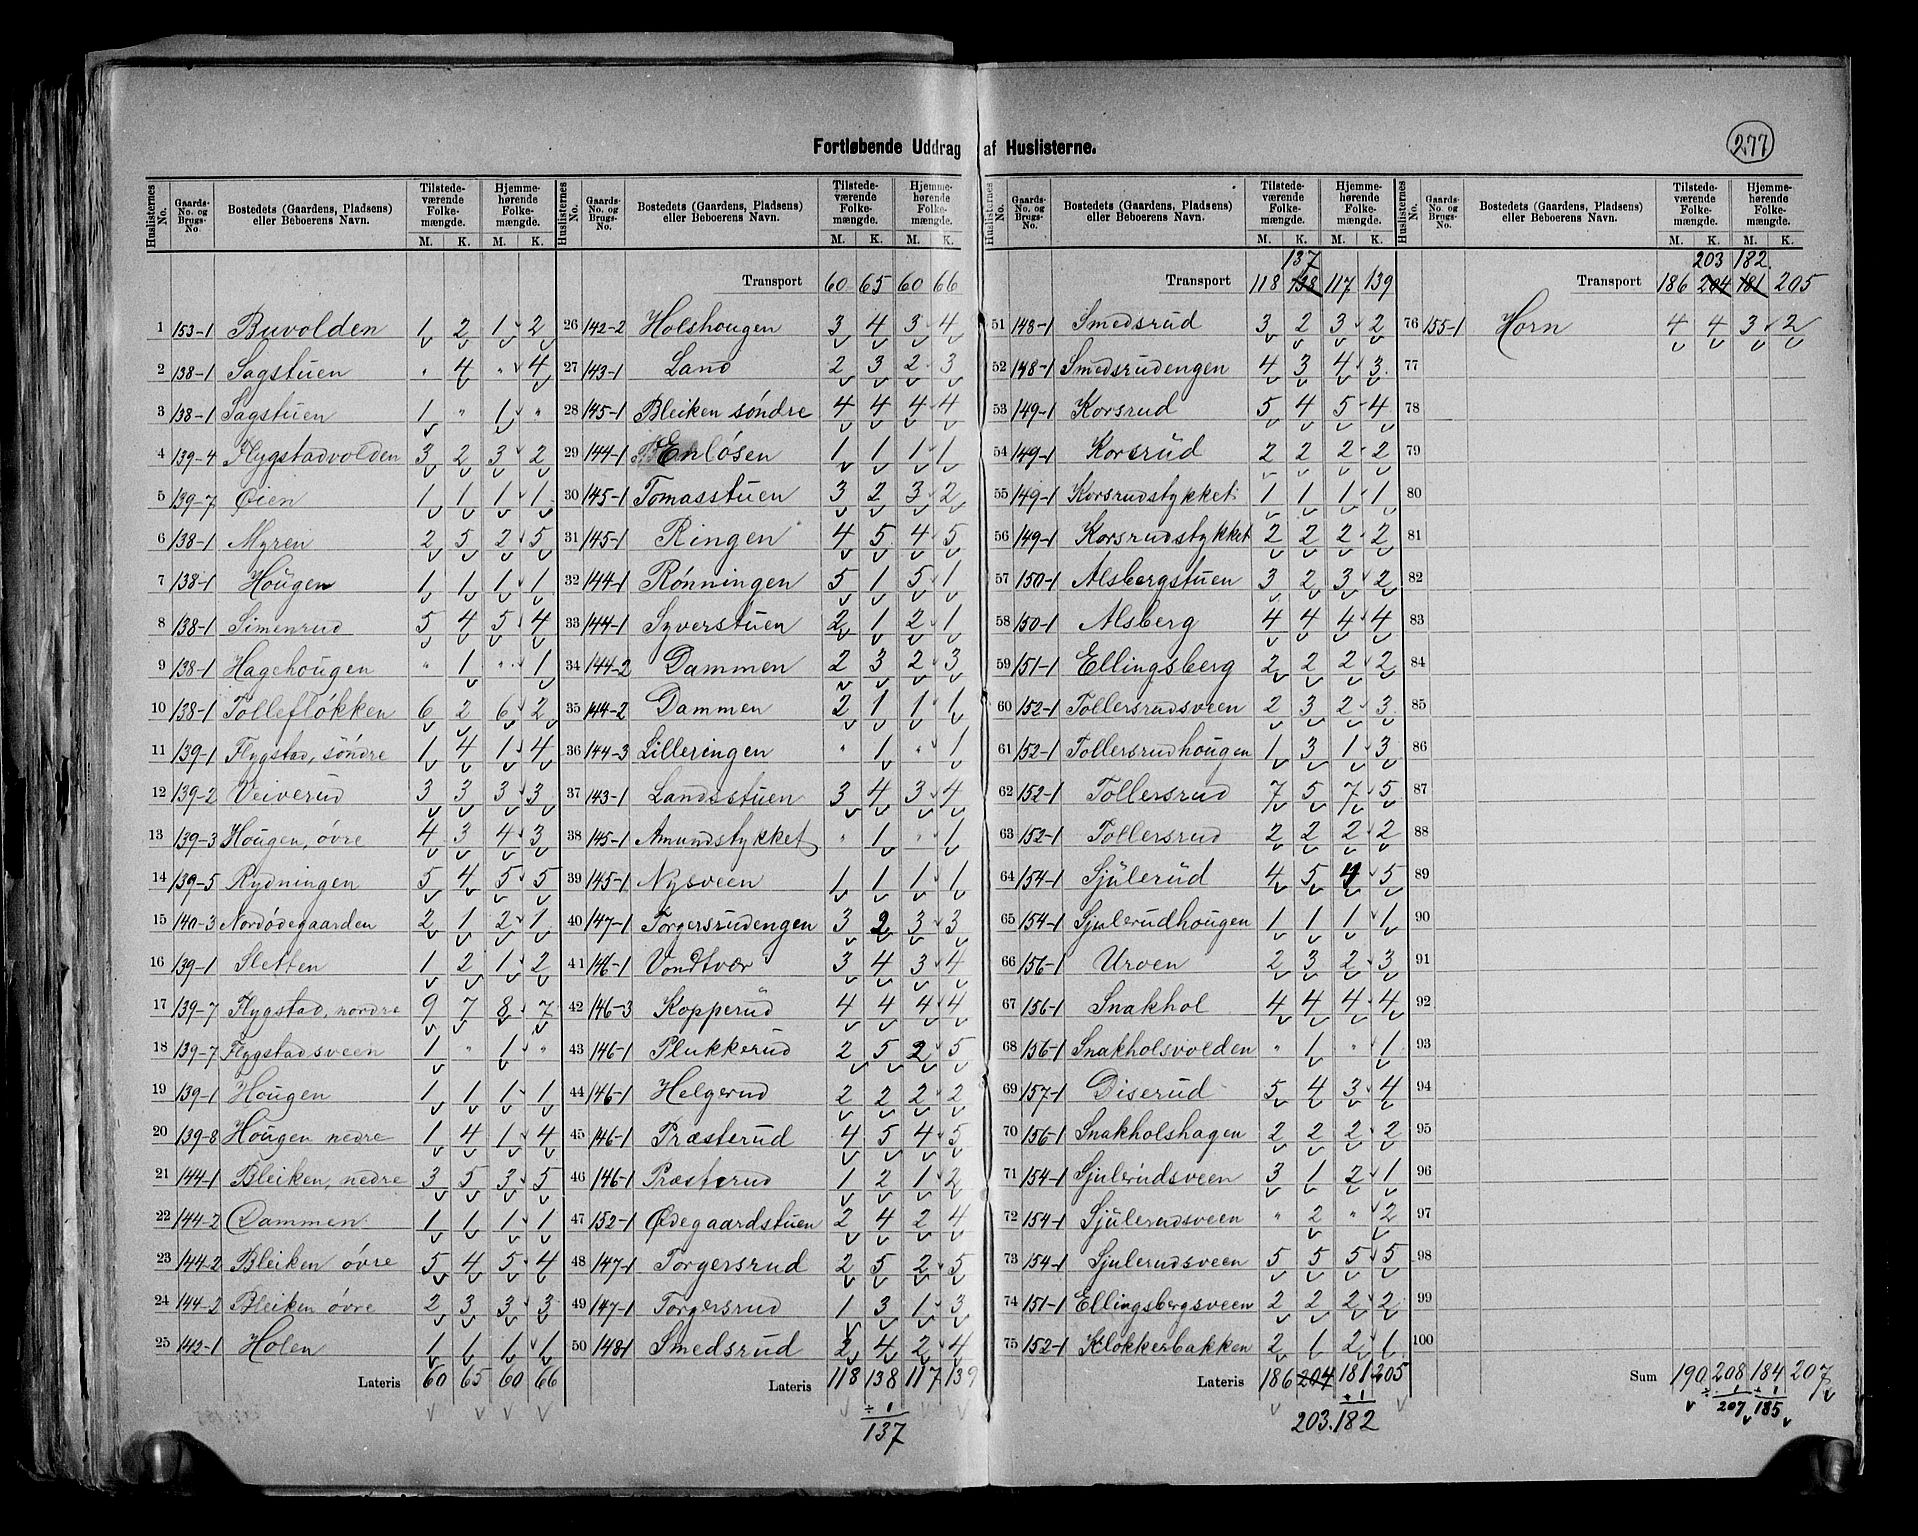 277
Fortløbende Uddrag af Huslisterne.
Huslisternes No. Gaards-No. og Brugs-No. Bostedets (Gaardens, Pladsens) eller Beboerens Navn. Tilstedeværende Folkemængde. M. K. Hjemmehørende Folkemængde. M. K.
1 153-1 Buvolden 1 2 1 2
2 138-1 Sagstuen " 4 " 4
3 138-1 Sagstuen 1 " 1 "
4 139-4 Flygstadvolden 3 2 3 2
5 139-7 Øien 1 1 1 1
6 138-1 Myren 2 5 2 5
7 138-1 Hougen 1 1 1 1
8 138-1 Simenrud 5 4 5 4
9 138-1 Hagehougen " 1 " 1
10 138-1 Tollefløkken 6 2 6 2
11 139-1 Flygstad, söndre 1 4 1 4
12 139-2 Veiverud 3 3 3 3
13 139-3 Hougen, øvre 4 3 4 3
14 139-5 Rydningen 5 4 5 5
15 140-3 Nordødegaarden 2 1 2 1
16 139-1 Sletten 1 2 1 2
17 139-7 Flygstad, nordre 9 7 8 7
18 139-7 Flygstadsveen 1 " 1 "
19 139-1 Hougen 1 1 1 1
20 139-8 Hougen nedre 1 4 1 4
21 144-1 Bleiken, nedre 3 5 3 5
22 144-2 Dammen 1 1 1 1
23 144-2 Bleiken övre 5 4 5 4
24 144-2 Bleiken övre 2 3 3 3
25 142-1 Holen 1 1 1 1
Lateris 60 65 60 66
Huslisternes No. Gaards-No. og Brugs-No. Bostedets (Gaardens, Pladsens) eller Beboerens Navn. Tilstedeværende Folkemængde. M. K. Hjemmehørende Folkemængde. M. K.
Transport 60 65 60 66
26 142-2 Holshougen 3 4 3 4
27 143-1 Land 2 3 2 3
28 145-1 Bleiken söndre 4 4 4 4
29 144-1 Enlösen 1 1 1 1
30 145-1 Tomasstuen 3 2 3 2
31 145-1 Ringen 4 5 4 5
32 144-1 Rønningen 5 1 5 1
33 144-1 Syverstuen 2 1 2 1
34 144-2 Dammen 2 3 2 3
35 144-2 Dammen 2 1 1 1
36 144-3 Lilleringen " 1 " 1
37 143-1 Landsstuen 3 4 3 4
38 145-1 Amundstykket " 1 " 1
39 145-1 Nysveen 1 1 1 1
40 147-1 Torgersrudengen 3 2 3 3
41 146-1 Vondtvær 3 4 3 4
42 146-3 Kopperud 4 4 4 4
43 146-1 Plukkerud 2 5 2 5
44 146-1 Helgerud 2 2 2 2
45 146-1 Præsterud 4 5 4 5
46 146-1 Præsterud 1 2 1 2
47 152-1 Ødegaardstuen 2 4 2 4
48 147-1 Torgersrud 2 5 2 5
49 147-1 Torgersrud 1 3 1 3
50 148-1 Smedsrud 2 4 2 4
Lateris 118 138 117 139
÷ 1
137
Huslisternes No. Gaards-No. og Brugs-No. Bostedets (Gaardens, Pladsens) eller Beboerens Navn. Tilstedeværende Folkemængde. M. K. Hjemmehørende Folkemængde. M. K.
137
Transport 118 138 117 139
51 148-1 Smedsrud 3 2 3 2
52 148-1 Smedsrudengen 4 3 4 3
53 149-1 Korsrud 5 4 5 4
54 149-1 Korsrud 2 2 2 2
55 149-1 Korsrudstykket 1 1 1 1
56 149-1 Korsrudstykket 2 2 2 2
57 150-1 Alsbergstuen 3 2 3 2
58 150-1 Alsberg 4 4 4 4
59 151-1 Ellingsberg 2 2 2 2
60 152-1 Tollersrudsveen 2 3 2 3
61 152-1 Tollersrudhougen 1 3 1 3
62 152-1 Tollersrud 7 5 7 5
63 152-1 Tollersrud 2 2 2 2
64 154-1 Sjulerud 4 5 4 5
65 154-1 Sjulerudhougen 1 1 1 1
66 156-1 Urven 2 3 2 3
67 156-1 Snakhol 4 4 4 4
68 156-1 Snakholsvolden " 1 " 1
69 157-1 Diserud 5 4 3 4
70 156-1 Snakholshagen 2 2 2 2
71 154-1 Sjulerudsveen 3 1 2 1
72 154-1 Sjulerudsveen " 2 " 2
73 154-1 Sjulerudsveen 5 5 5 5
74 151-1 Ellingsbergsveen 2 2 2 2
75 152-1 Klokkerbakken 2 1 2 1
Lateris 186 204 181 205
+ 1
203. 182
Huslisternes No. Gaards-No. og Brugs-No. Bostedets (Gaardens, Pladsens) eller Beboerens Navn. Tilstedeværende Folkemængde. M. K. Hjemmehørende Folkemængde. M. K.
203 182.
Transport 186 204 181 205
76 155-1 Horn 4 4 3 2
77
78
79
80
81
82
83
84
85
86
87
88
89
90
91
92
93
94
95
96
97
98
99
100
Sum 190 208 184 207
÷ 1 + 1
207 185